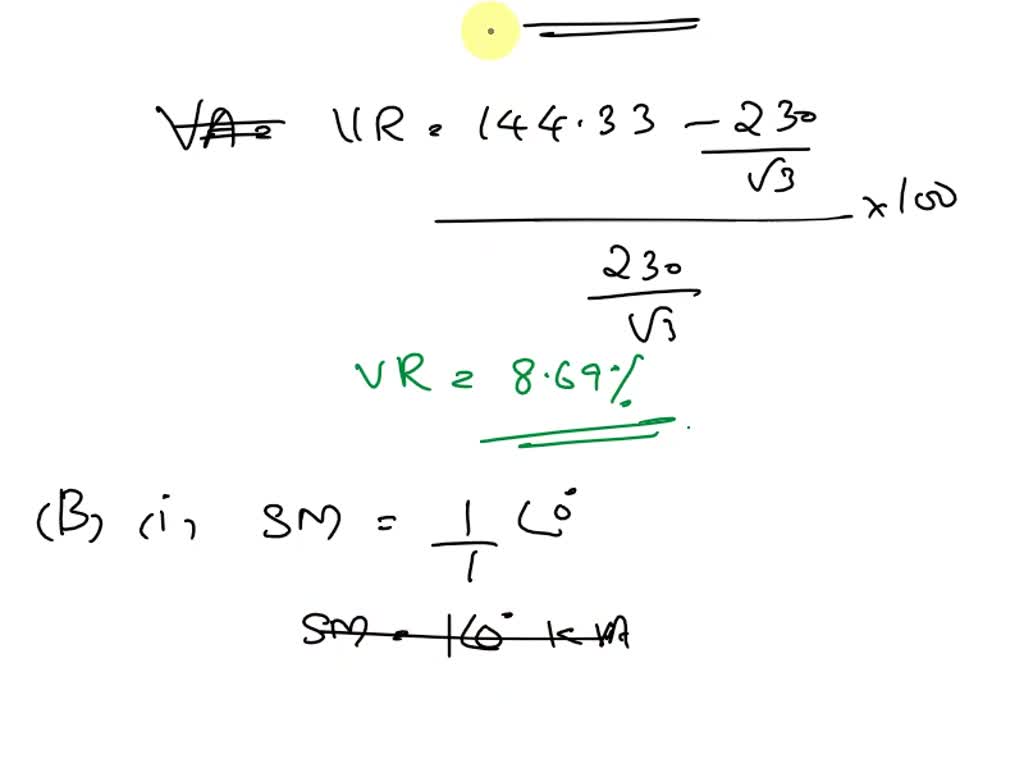 VA= VR = 144.33 - 230
√3
x100
230
√3
VR = 8.69%
(B) (i) SM = 1 ∠0°
1
SM = 1∠0° KVA